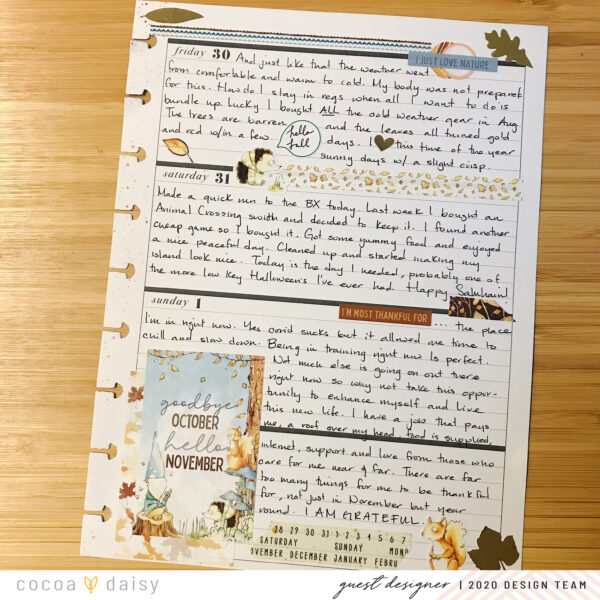 friday 30
I JUST LOVE NATURE
And just like that the weather went
from comfortable and warm to cold. My body was not prepared
for this. How do I stay in regs when all I want to do is
bundle up. Lucky I bought All the cold weather gear in Aug.
The trees are barren and the leaves all turned gold
and red w/in a few days. I this time of the year
sunny days w/ a slight crisp.
hello
fall
saturday 31
Made a quick run to the BX today. Last week I bought an
Animal Crossing switch and decided to keep it. I found another
cheap game so I bought it. Got some yummy food and enjoyed
a nice peaceful day. Cleaned up and started making my
island look nice. Today is the day I needed, probably one of
the more low key Halloween's I've ever had. Happy Samhain!
sunday 1
I'M MOST THANKFUL FOR
... the place
I'm in right now. Yes covid sucks but it allowed me time to
chill and slow down. Being in training right now is perfect.
Not much else is going on out there
right now so why not take this oppor-
tunity to enhance myself and live
this new life. I have a job that pays
me, a roof over my head, food is supplied,
internet, support and love from those who
care for me near & far. There are far
too many things for me to be thankful
for, not just in November but year
round. I AM GRATEFUL.
goodbye
OCTOBER
hello
NOVEMBER
28 29 30 31 1 2 3 4 5 6 7
SATURDAY SUNDAY MON
OVEMBER DECEMBER JANUARY FEBRU
cocoa daisy
guest designer | 2020 DESIGN TEAM